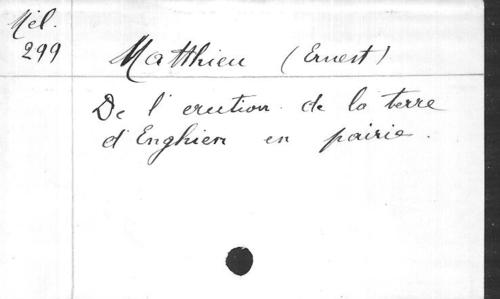 Mél.
299
Matthieu (Ernest)
De l'erection de la terre
d'Enghien en pairie.